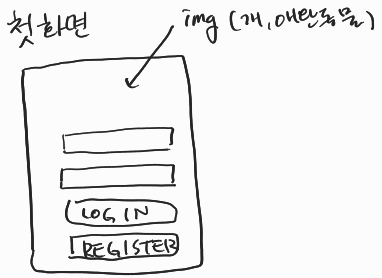 첫화면
img (개, 애완동물)
LOGIN
REGISTER